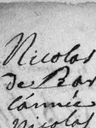 Nicolas
de Bar
l'année
Nicolas